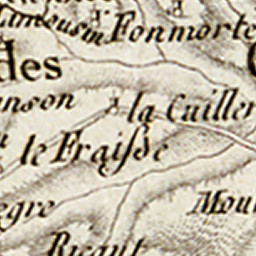 Fonmorte
des
nson
la Cuiller
le Fraiſse
egre
Mou
Ricaut